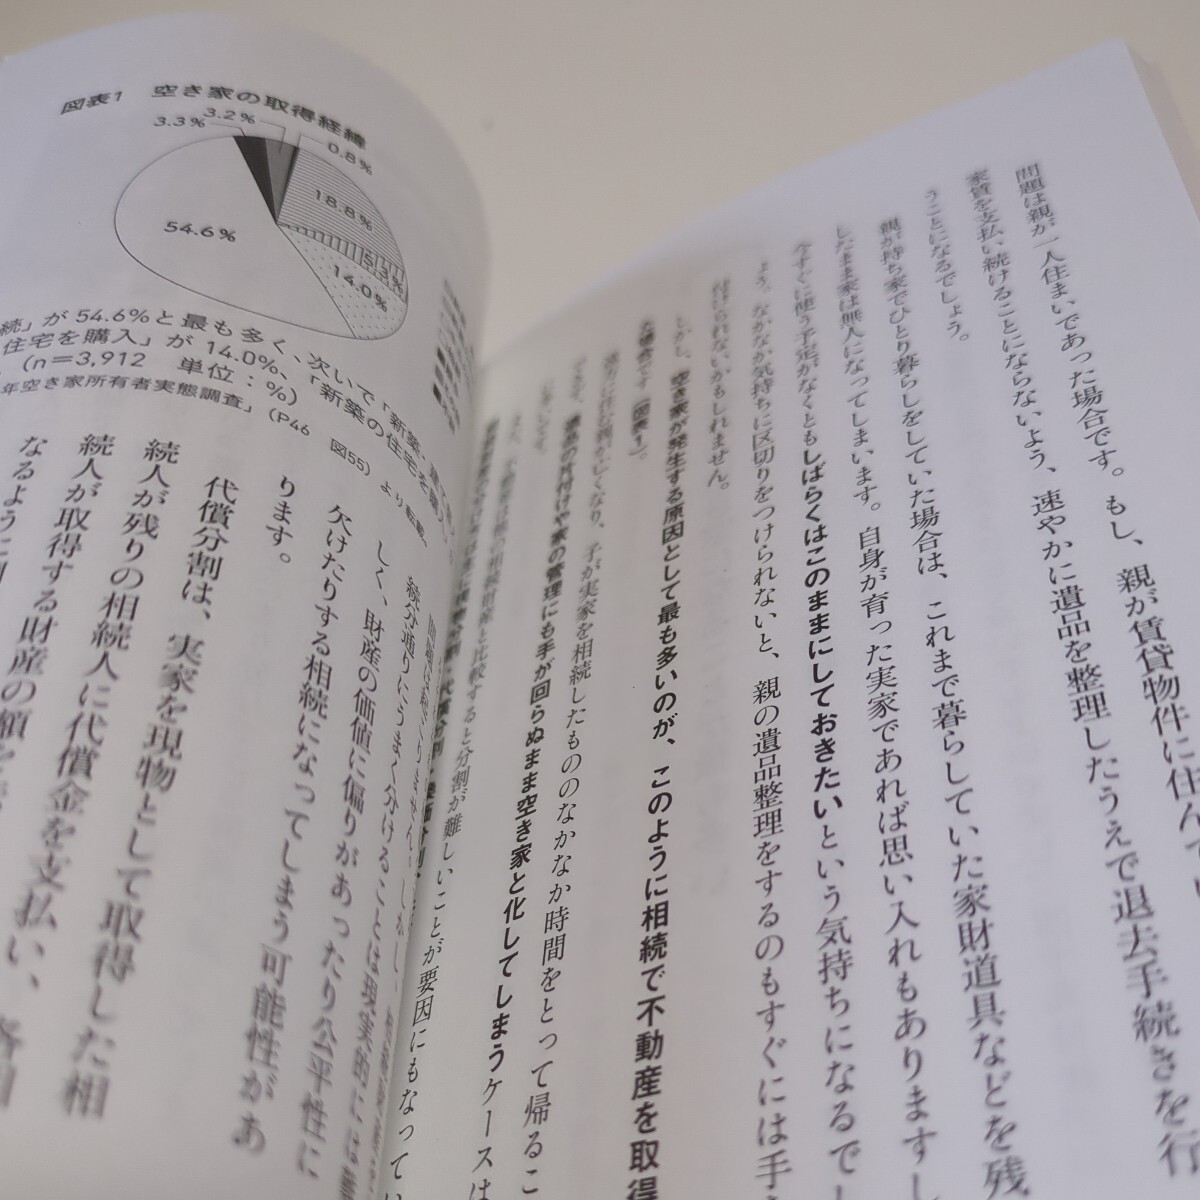 問題は親が一人住まいであった場合です。もし、親が賃貸物件に住んで
家賃を支払い続けることにならないよう、速やかに遺品を整理したうえで退去手続きを行
うことになるでしょう。
親が持ち家でひとり暮らしをしていた場合は、これまで暮らしていた家財道具などを残
したまま家は無人になってしまいます。自身が育った実家であれば思い入れもありますし
今すぐに使う予定がなくともしばらくはこのままにしておきたいという気持ちになるでし
ょう。なかなか気持ちに区切りをつけられないと、親の遺品整理をするのもすぐには手
付けられないかもしれません。
しかし、空き家が発生する原因として最も多いのが、このように相続で不動産を取得
た場合です（図表1）。
親が亡くなり、子が実家を相続したもののなかなか時間をとって帰るこ
遺品の片付けや家の管理にも手が回らぬまま空き家と化してしまうケースは
相続財産と比較すると分割が難しいことが要因にもなってい
図表1 空き家の取得経緯
3.3%
3.2%
0.8%
18.8%
5.3%
14.0%
54.6%
続」が54.6%と最も多く、次いで「新築・
住宅を購入」が14.0%、「新築の住宅を
(n＝3,912 単位：%)
年空き家所有者実態調査」(P46 図55) より転載。
続分通りにうまく分けることは現実的には
しく、財産の価値に偏りがあったり公平性に
欠けたりする相続になってしまう可能性があ
ります。
代償分割は、実家を現物として取得した相
続人が残りの相続人に代償金を支払い、各相
続人が取得する財産の額を
なるように